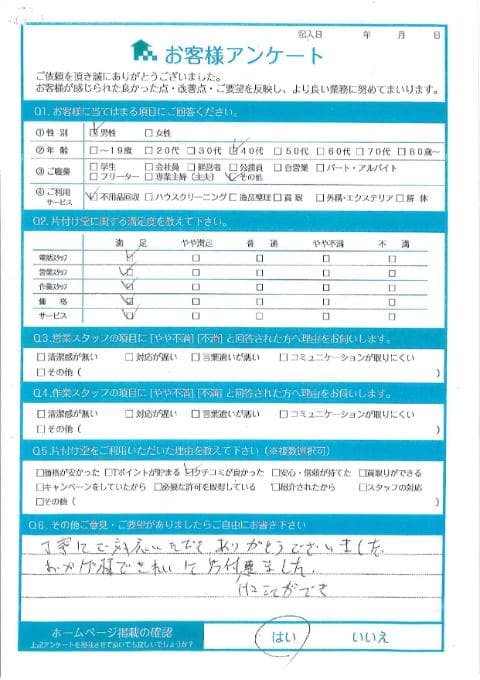 記入日　年　月　日
お客様アンケート
ご依頼を頂き誠にありがとうございました。
お客様が感じられた良かった点・改善点・ご要望を反映し、より良い業務に努めてまいります。
Q1. お客様に当てはまる項目にご回答ください。
①性 別 ☑男性 □女性
②年 齢 □～19歳 □20代 □30代 ☑40代 □50代 □60代 □70代 □80歳～
③ご職業 □学生 □会社員 □経営者 □公務員 □自営業 □パート・アルバイト
□フリーター □専業主婦（主夫） ☑その他
④ご利用サービス ☑不用品回収 □ハウスクリーニング □遺品整理 □買取 □外構・エクステリア □解体
Q2. 片付け堂に関する満足度を教えて下さい。
満足 やや満足 普通 やや不満 不満
電話スタッフ ☑ □ □ □ □
営業スタッフ ☑ □ □ □ □
作業スタッフ ☑ □ □ □ □
価格 ☑ □ □ □ □
サービス ☑ □ □ □ □
Q3. 営業スタッフの項目に [やや不満] [不満] と回答された方へ理由をお伺いします。
□清潔感が無い □対応が遅い □言葉遣いが悪い □コミュニケーションが取りにくい
□その他（　）
Q4. 作業スタッフの項目に [やや不満] [不満] と回答された方へ理由をお伺いします。
□清潔感が無い □対応が遅い □言葉遣いが悪い □コミュニケーションが取りにくい
□その他（　）
Q5. 片付け堂をご利用いただいた理由を教えて下さい（※複数選択可）
□価格が安かった □Tポイントが貯まる ☑クチコミが良かった □安心・信頼が持てた □買取りができる
□キャンペーンをしていたから □必要な許可を取得している □紹介されたから □スタッフの対応
□その他（　）
Q6. その他ご意見・ご要望がありましたらご自由にお書き下さい
丁寧にご対応いただき ありがとうございました
おかげ様できれいに片付
ことができ
ました
ホームページ掲載の確認
上記アンケートを掲載させて頂いても宜しいでしょうか？
はい いいえ